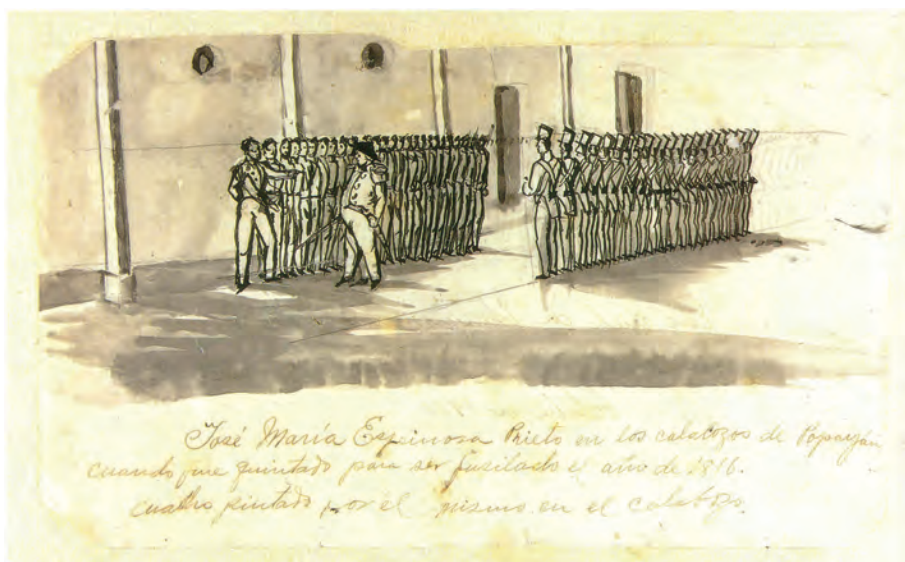 José María Espinosa Prieto en los calabozos de Popayán
cuando fue quintado para ser fusilado el año de 1816.
cuadro pintado por el mismo en el calabozo.